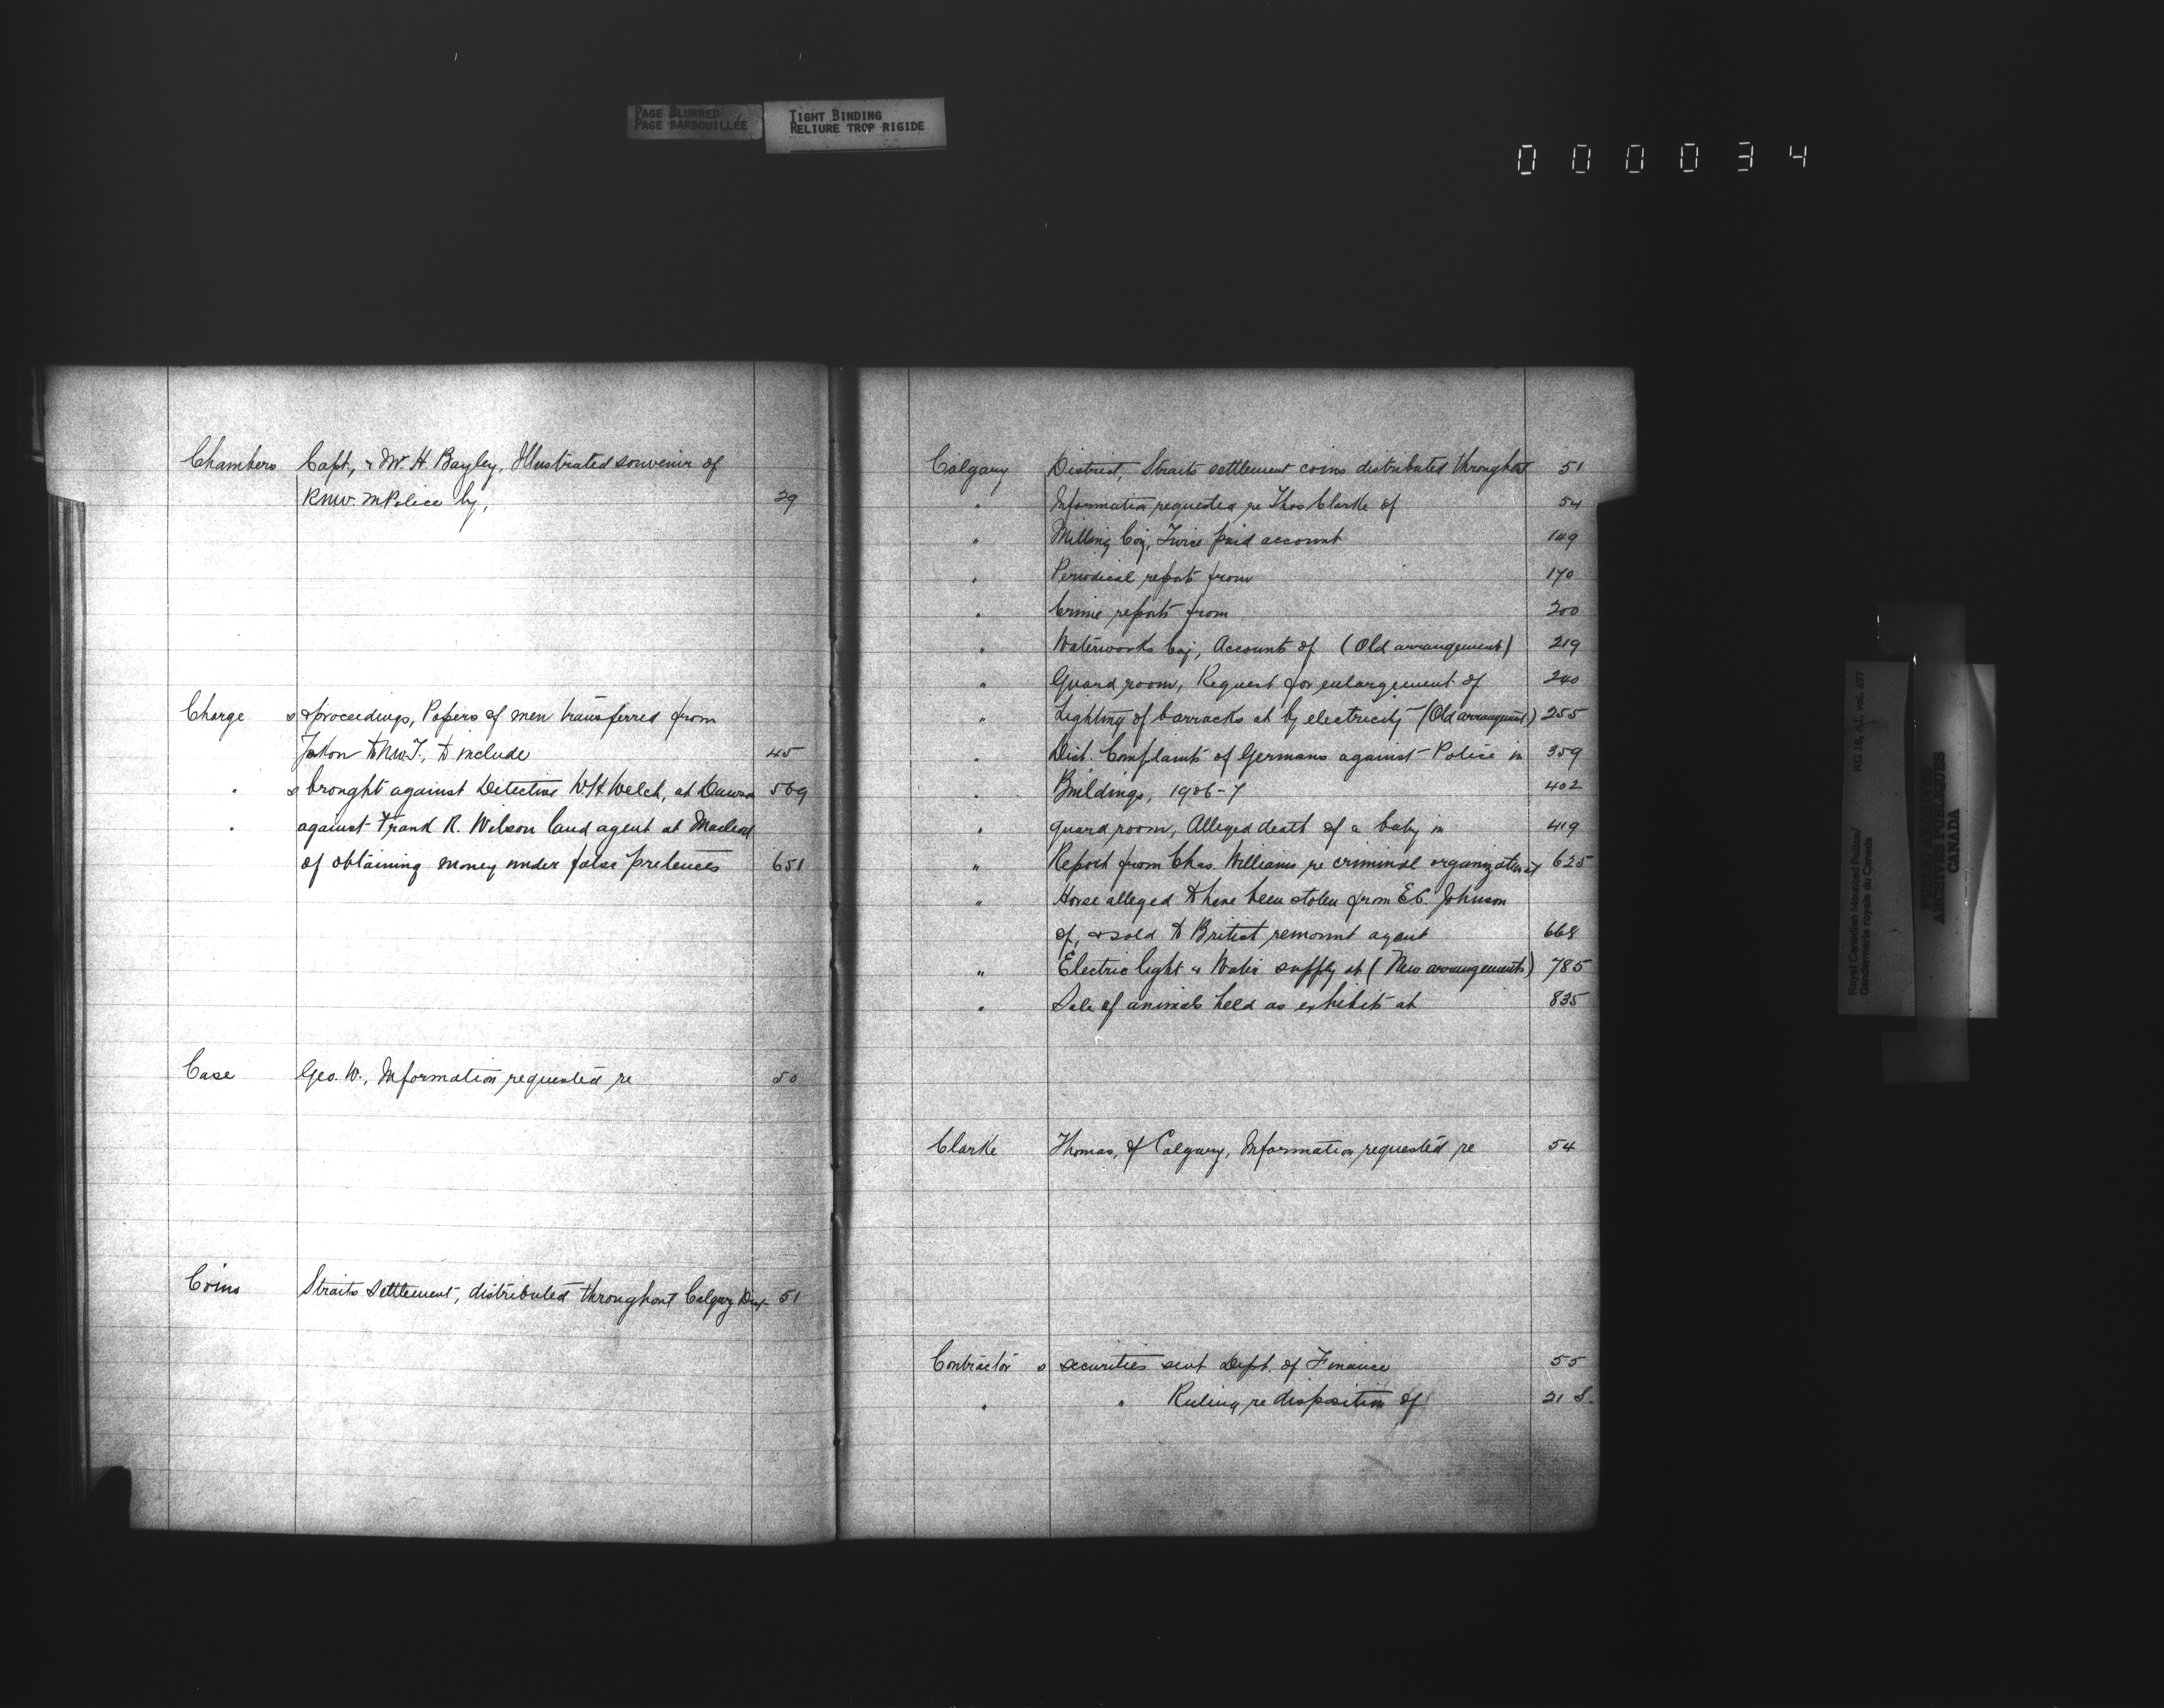 PAGE BLURRED
PAGE BARBOUILLÉE
TIGHT BINDING
RELIURE TROP RIGIDE
000034
Chambers Capt., & W. H. Bayley, Illustrated souvenir of
R.N.W.M Police by, 29
Charge s & proceedings, Papers of men transferred from
Yukon to N.W.T., to include 45
" s brought against Detective W.H. Welch, at Dawson 569
" against Frank R. Wilson land agent at Macleod
of obtaining money under false pretences 651
Case Geo. W., Information requested re 50
Coins Straits Settlement, distributed throughout Calgary Dist 51
Calgary District, Straits settlement coins distributed throughout 51
" Information requested re Thos Clarke of 54
" Milling Coy, Twice paid account 149
" Periodical reports from 170
" Crime reports from 200
" Waterworks Coy, Accounts of (Old arrangement) 219
" Guard room, Request for enlargement of 240
" Lighting of barracks at by electricity (Old arrangement) 255
" Dist. Complaints of Germans against Police in 359
" Buildings, 1906-7 402
" guard room, Alleged death of a baby in 419
" Report from Chas. Williams re criminal organization at 625
" Horse alleged to have been stolen from E.C. Johnson
of, & sold to British remount agent 668
" Electric light & Water supply at (New arrangements) 785
" Sale of animals held as exhibits at 835
Clarke Thomas, of Calgary, Information requested re 54
Contractor s securities sent Dept. of Finance 55
" " Ruling re disposition of 21 S.
Royal Canadian Mounted Police/
Gendarmerie royale du Canada
RG 18, A1, vol. 677
PUBLIC ARCHIVES
ARCHIVES PUBLIQUES
CANADA